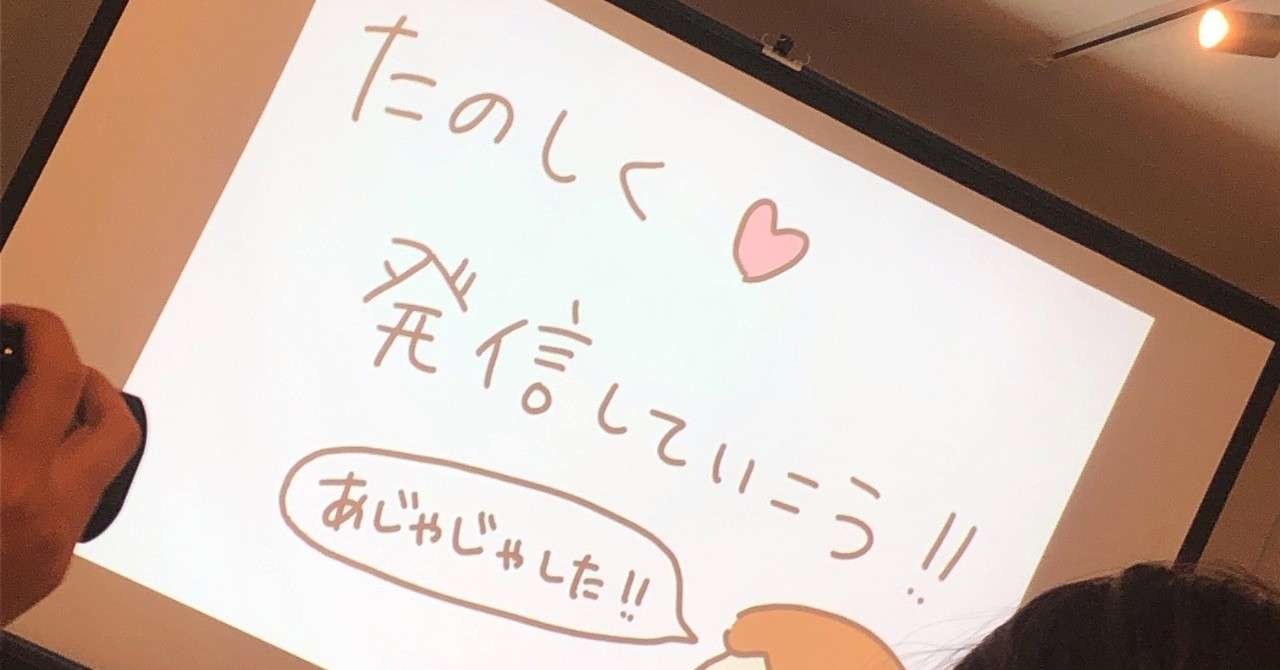 たのしく
発信していこう!!
あじゃじゃした!!